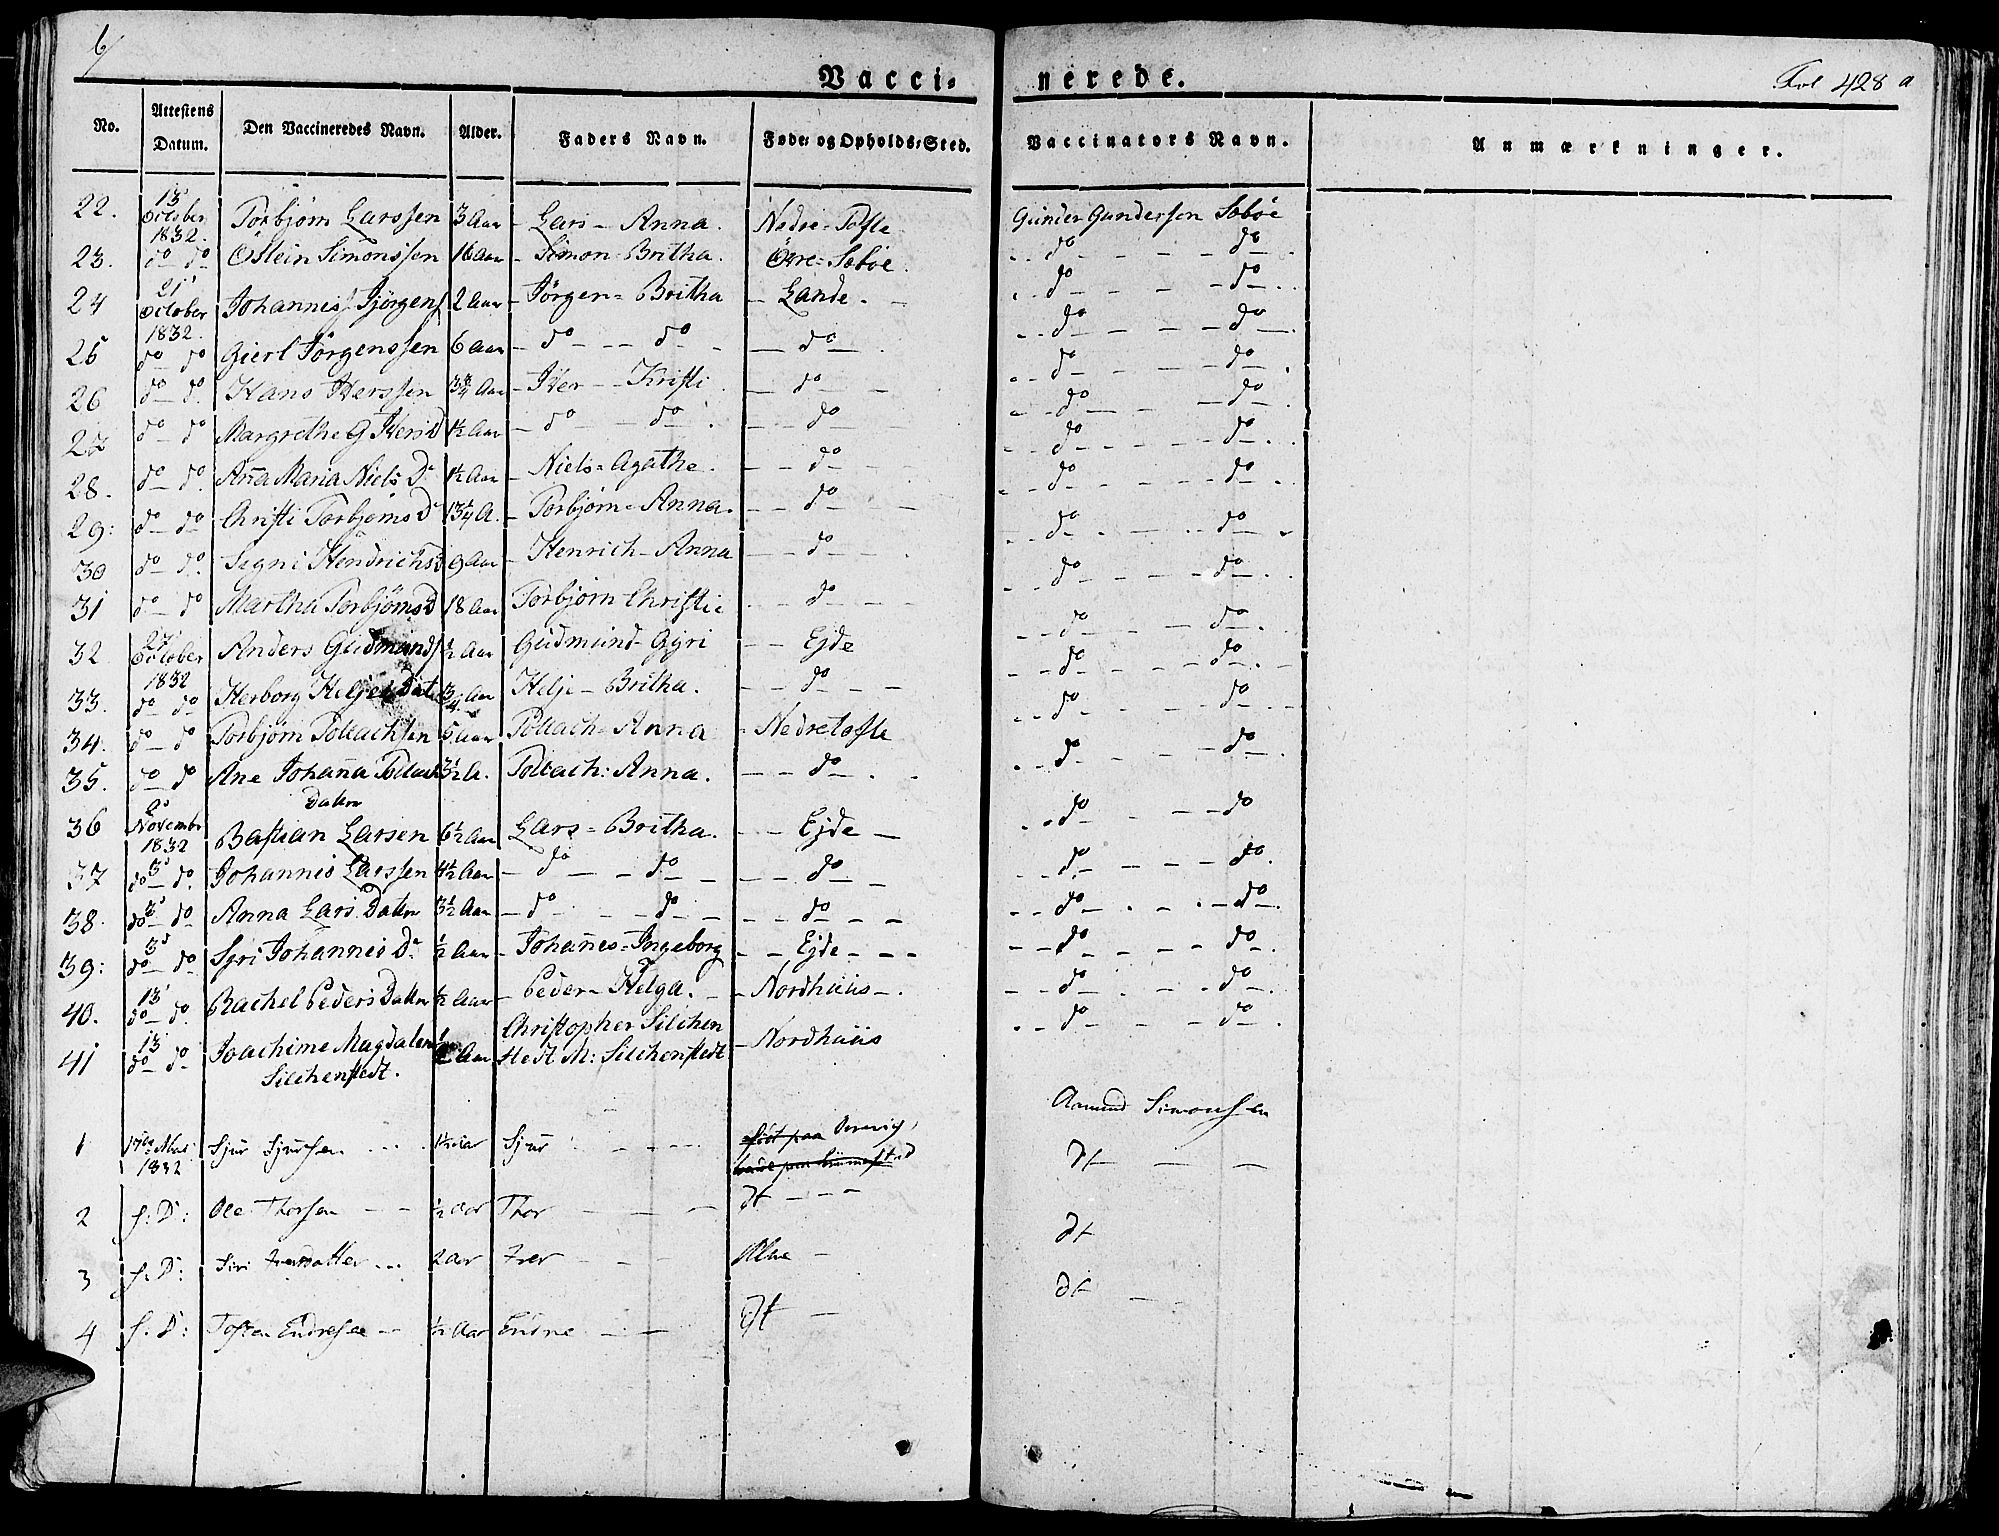 6/
Vacci- nerede.
Fol 428 a
No. Attestens Datum. Den Vaccineredes Navn. Alder. Faders Navn. Føde- og Opholds-Sted. Vaccinators Navn. Anmærkninger.
22. 13' October 1832. Torbjørn Larssen 3 Aar - Lars - Anna. Nedre-Tofte Gunder Gundersen Søbøe
23. do do Östein Simonssen 16 Aar - Simon - Britha. Övre-Søböe. do do
24 21' October 1832. Johannes Jørgens 2 Aar - Jörgen - Britha - Lande. do do
25 do do Giert Jörgenssen 6 Aar do do do do do
26 do do Hans Iverssen 3¾ Aar - Iver - Kristi do do do
27 do do Margrethe G Ivers D 1½ Aar do do do do do
28. do do Anna Maria Niels D. 1½ Aar - Niels - Agathe. do do do
29: do do Christi Torbjørns D 13¼ A. - Torbjørn - Anna. do do do
30 do do Segni Hendrichs 9 Aar - Henrich - Anna do do do
31 do do Martha Torbjörns D 18 Aar Torbjørn - Christie do do do
32 27' October 1832 Anders Gudmunds ½ Aar Gudmund - Gyri Ejde do do
33. do do Herborg Heljes Dat ¾ Aar Helje - Britha. do do do
34. do do Torbjørn Tollachsen 5 Aar Tollach - Anna Nedretofte do do
35. do do Ane Johanna Tollach Datter 3½ A. Tollach: Anna. do do do
36 2' November 1832 Bastian Larsen 6½ Aar Lars - Britha. Ejde do do
37 3' do do. Johannes Larssen 4½ Aar do do do do do.
38. 3' do do Anna Lars Datter 3½ Aar do do do do do.
39: 3' do do Syri Johannes D. ½ Aar - Johanes - Ingeborg Ejde do do
40. 13' do do. Rachel Peders Datter ½ Aar - Peder - Helga. Nordhuus do do
41 13' do do Joachime Magdalena Silchenstedt. ½ Aar Christopher Silchen stedt M: Silchenstedt Nordhuus do do
1 17de Mai 1832 Sjur Sjursen 1½ Aar Sjur født paa Amund Simonsen
2 f: D: Ole Thorsen ½ Aar Thor dt dt
3 f: D: Siri Iversdatter 2 Aar Iver dt
4 f: D: Tosten Endresen ½ Aar Endre dt dt